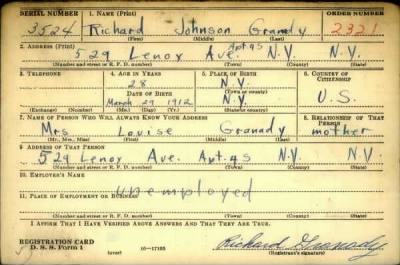 SERIAL NUMBER 1. NAME (Print) ORDER NUMBER
3524 Richard Johnson Granady 2321
(First) (Middle) (Last)
2. ADDRESS (Print)
529 Lenox Ave. Apt 4S N.Y. N.Y.
(Number and street or R. F. D. number) (Town) (County) (State)
3. TELEPHONE 4. AGE IN YEARS 5. PLACE OF BIRTH 6. COUNTRY OF CITIZENSHIP
28 N.Y.
DATE OF BIRTH (Town or county)
March 29 1912 N.Y. U.S.
(Exchange) (Number) (Mo.) (Day) (Yr.) (State or country)
7. NAME OF PERSON WHO WILL ALWAYS KNOW YOUR ADDRESS 8. RELATIONSHIP OF THAT PERSON
Mrs Louise Granady mother
(Mr., Mrs., Miss) (First) (Middle) (Last)
9. ADDRESS OF THAT PERSON
529 Lenox Ave. Apt. 4S N.Y. N.Y.
(Number and street or R. F. D. number) (Town) (County) (State)
10. EMPLOYER'S NAME
unemployed
11. PLACE OF EMPLOYMENT OR BUSINESS
(Number and street or R. F. D. number) (Town) (County) (State)
I AFFIRM THAT I HAVE VERIFIED ABOVE ANSWERS AND THAT THEY ARE TRUE.
REGISTRATION CARD
D. S. S. Form 1 (over) 16—17105 Richard Granady
(Registrant's signature)